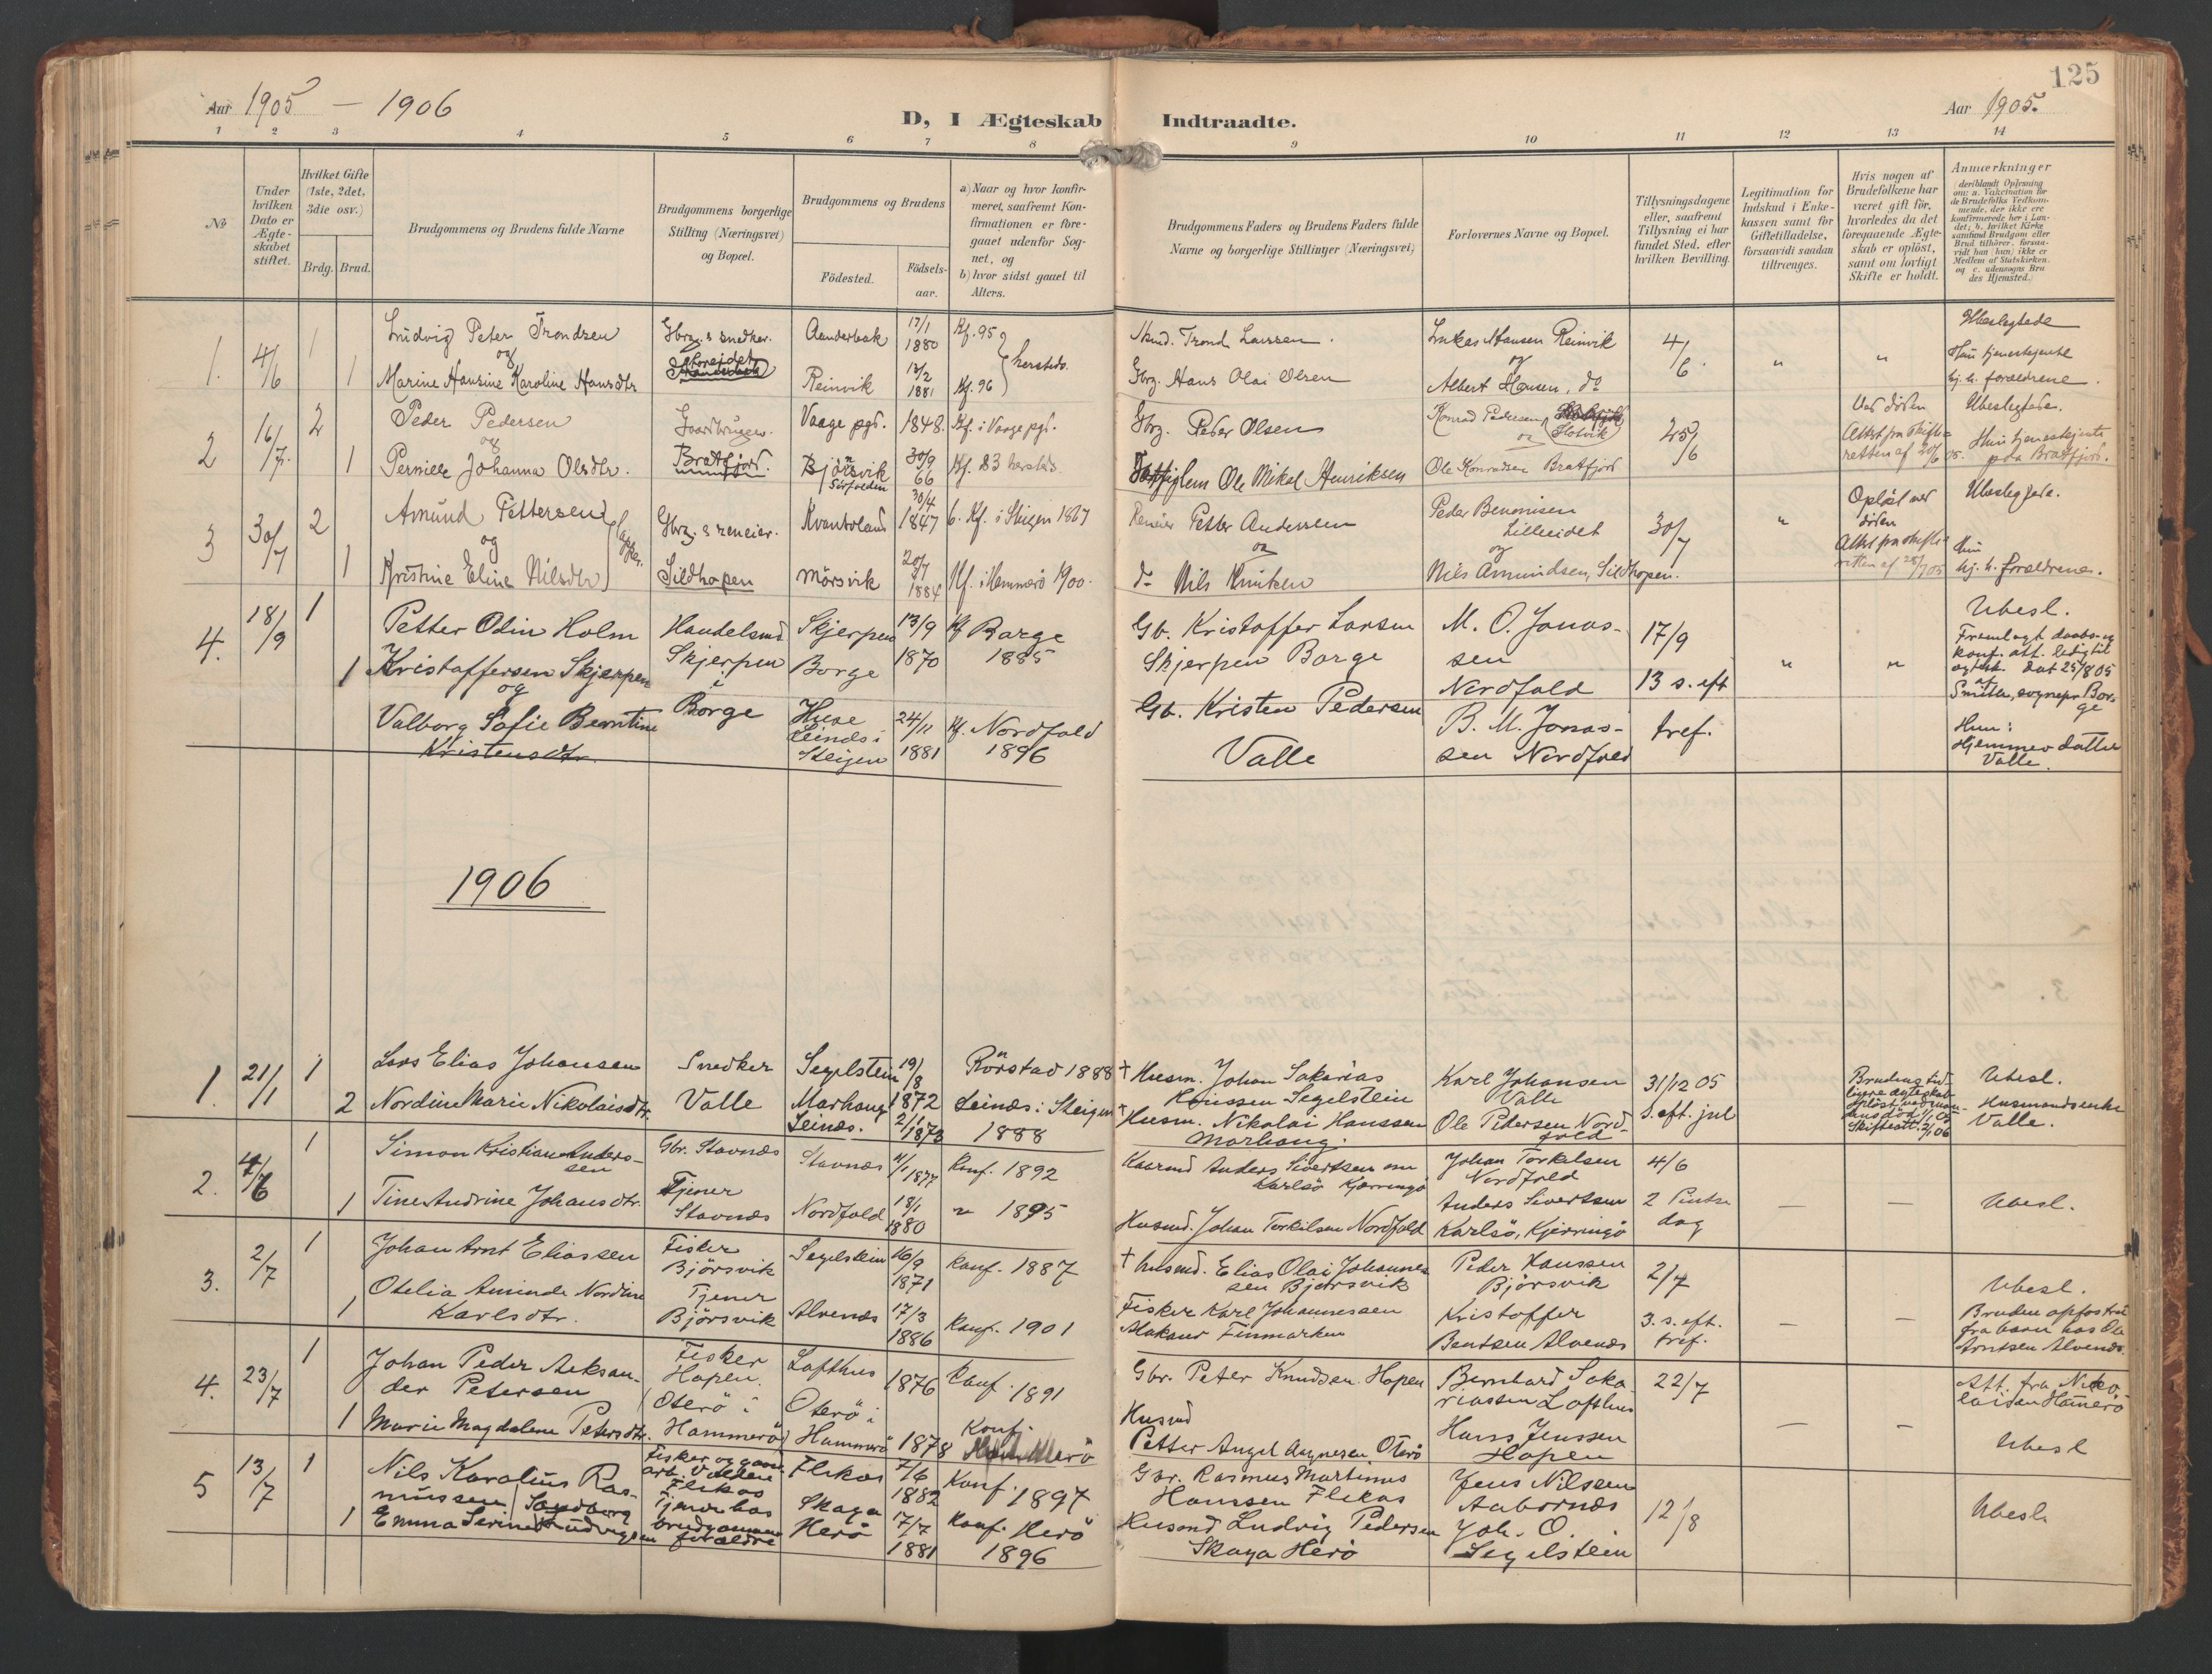 125
Aar 1905 — 1906
D, I Ægteskab Indtraadte.
Aar 1905.
1 2 3 4 5 6 7 8 9 10 11 12 13 14
No
Under hvilken Dato er Ægteskabet stiftet.
Hvilket Gifte (1ste, 2det, 3die osv.)
Brdg. Brud.
Brudgommens og Brudens fulde Navne
Brudgommens borgerlige Stilling (Næringsvei) og Bopæl.
Brudgommens og Brudens
Fødested.
Fødsels-aar.
a) Naar og hvor konfirmeret, saafremt Konfirmationen er foregaaet udenfor Sognet, og
b) hvor sidst gaaet til Alters.
Brudgommens Faders og Brudens Faders fulde Navne og borgerlige Stillinger (Næringsvei)
Forlovernes Navne og Bopæl.
Tillysningsdagene eller, saafremt Tillysning ei har fundet Sted, efter hvilken Bevilling.
Legitimation for Indskud i Enkekassen samt for Giftetilladelse, forsaavidt saadan tiltrænges.
Hvis nogen af Brudefolkene har været gift før, hvorledes da det foregaaende Ægteskab er opløst, samt om lovligt Skifte er holdt.
Anmærkninger
(deriblandt Oplysning om: a. Vaccination for de Brudefolks Vedkommende, der ikke ere konfirmerede her i Landet; b. hvilket Kirkesamfund Brudgom eller Brud tilhører, forsaavidt han (hun) ikke er Medlem af Statskirken, og c. udensogns Brudes Hjemsted.)
1. 4/6 1 Ludvig Peter Trondsen Gbrg. & snedker. 17/1 1880 Kf. 95 Trond Larssen. Lukas Hansen Reinvik 4/6. " " Ubeslegtede
og
1 Marine Hansine Karoline Hansdtr. Reinvik 13/2 1881 Kf. 96 } hersteds. Gbrg. Hans Olai Olsen Albert Hansen, do Hun tjenestejente hj. h. forældrene.
2 16/7. 2 Peder Pedersen Gaardbruger. Vaage pgd. 1848. Kf. i Vaage pgd. Gbrg. Peder Olsen Konrad Pedersen, Slotvik 25/6 Ved døden Ubeslegtede.
og
1 Pernille Johanna Olsdtr. Bratfjord. Bjørnsvik Sørfolden 30/9 66 Kf. 83 hersteds. Ole Mikal Henriksen Ole Konradsen Bratfjord Attest fra skifteretten af 20/6 05. Hun tjenestejente paa Bratfjord.
3 30/7 2 Amund Pettersen Gbrg. & reneier. Kvantoland 30/4 1847 b. Kf. i Steigen 1867 Reneier Petter Anderssen Peder Benonisen Lilleeidet 30/7 " Opløst ved døden Ubeslegtede.
og
1 Kristine Eline Nilsdtr. } Lapper. Sildhopen Mørsvik 20/7 1884 Kf. i Hammerø 1900. do Nils Nils Amundsen, Sildhopen. Attest fra skifteretten af 25/7 05 Hun hj. h. forældrene.
4. 18/9 1 Petter Odin Holm Handelsmd Skjerpen 13/9 Kf Borge Gb. Kristoffer Larsen M. O. Jonas- 17/9 " " Ubesl.
1 Kristoffersen Skjerpen Skjerpen Borge 1870 1885 Skjerpen Borge sen Fremlagt daabs- og konf. att. ledig til
og i Nordfold 13 s. eft ægtesk. dat 25/8 05 af
Valborg Sofie Berntine Borge Leinds i 24/11 Kf. Nordfold Gb. Kristen Pedersen B. M. Jonas- tref. Smith, sognepr. Borge
Kristensdtr. Steigen 1881 1896 Valle sen Nordfold Hun: Hjemmev. datter Valle.
1906
1. 21/1 1 Lars Elias Johansen Snedker Segelstein 19/8 1872 Rørstad 1888 † Husm. Johan Sakarias Segelstein Karl Johansen Valle 31/12 05 Brudens tidligere ægteskab opløst ved mandens død Ubesl.
2 Nordine Marie Nikolaisdtr. Valle Marhaug Leines. 2/1 1873 Leines i Steigen 1888 † Husm. Nikolai Hanssen Marhaug. Ole Pedersen Nordfold s. eft. jul Skifteatt. 2/1 06 Husmandsenke Valle.
2. 4/6 1 Simon Kristian Anderssen Gbr. Stavnes Stavnæs 1877 Konf. 1892 Anders Sivertsen Karlsø Kjærringø Johan Torkilsen Nordfold 4/6
1 Tine Andrine Johansdtr. Tjener Stavnæs Nordfold 18/1 1880 " 1895 Husmd. Johan Torkilsen Nordfold Anders Sivertsen Karlsø, Kjerringø 2 Pintsedag — — Ubesl.
3. 2/7 1 Johan Arnt Eliassen Fisker Bjørsvik Segelstein 16/9 1871 Konf. 1887 † husmd. Elias Olai Johannessen Bjørsvik Peder Hanssen Bjørsvik 2/7 Ubesl.
1 Otelia Aminde Nordine Karlsdtr. Tjener Bjørsvik Alvenes 17/3 1886 Konf. 1901 Fisker Karl Johannessen Finmarken Kristoffer Bentsen Alvenes 3. s. eft. tref. — — Bruden opfostret fra barn hos Ole Arntsen Alvenes.
4. 23/7 1 Johan Peder Aleksander Petersen Fisker Hopen. Lofthus 1876 Konf. 1891 Gbr. Peter Knudsen Hopen Bernhard Sakariassen Lofthus 22/7 Att. fra Nikolaisen Hamerø
1 Marie Magdalene Petersdtr. Oterø i Hammerø Oterø i Hammerø 1878 Konf. Husmd Petter Angel Oterø Hans Jenssen Hopen — — Ubesl
5 13/7 1 Nils Karolius Rasmussen Fisker Flekos Flekos 7/6 1882 Konf. 1897 Gbr. Rasmus Martinus Hanssen Flekos Jens Nilssen 12/8 Ubesl
1 Emma Serine Ludvigsen Tjener hos brudgommens forældre Skaga Herø 17/7 1881 Konf. Herø 1896 Husmd Ludvig Pedersen Skaga Herø Joh. O. Segelstein